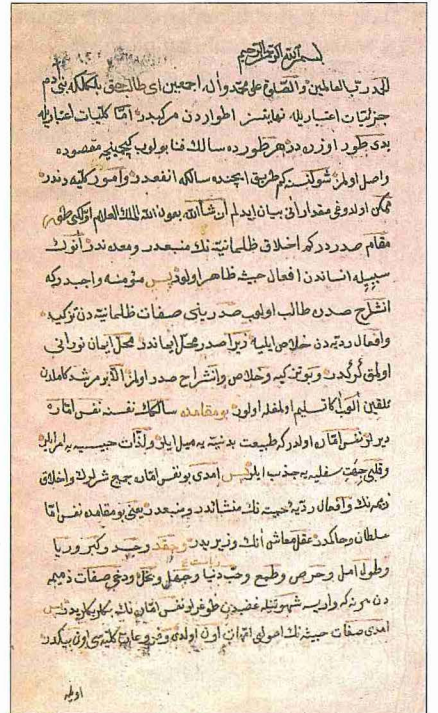 بسم الله الرحمن الرحيم
الحمد لله رب العالمين والصلوة على محمد وآله اجمعين اى طالب حق بلكلكه بنى آدم
جزئيات اعتباريله نهايتسز اطواردن مركبدر اما كليات اعتباريله
يدى طور اوزرندەدر هر طورده سالك فنا بولوب كچمينجه مقصوده
واصل اولمز شول نسنه كم طريق ايچنده سالكه انفعدر وامور كليه دندر
ممكن اولدوغى مقدارنى بيان ايدەلم ان شاء الله بعون الله الملك العلام اولكى طور
مقام صدردركه اخلاق ظلمانيه نك منبعدر ومعدنىدر انوك
سببيله انساندن افعال خبيثه ظاهر اولور پس مؤمنه واجبدركه
انشراح صدره طالب اولوب صدرينى صفات ظلمانيه دن تزكيه
وافعال رديه دن خلاص ايليه زيرا صدر محل ايماندر محل ايمان نورانى
اولمق كركدر وبو تزكيه وخلاص وانشراح صدر اولمز الا بو مرشد كاملدن
تلقين آلوب اكا تسليم اولمغله اولور بو مقامده سالكك نفسنه نفس اماره
ديرلر نفس اماره اولدركه طبيعت بدنيه يه ميل ايلر ولذات حسيه يه امر ايلر
وقلبى جهت سفليه يه جذب ايلر پس امدى بو نفس اماره جميع شرلرك واخلاق
ذميمه نك وافعال رديه خبيثه نك منشأىدر ومنبعىدر يعنى بو مقامده نفس اماره
سلطان وحاكمدر عقل معاش انك وزيريدر وحقد وحسد وكبر وريا
وطول امل وحرص وطمع وحب دنيا وجهل وبخل ودخى صفات ذميمه
دن هر نه كه وار ايسه شهوتيله غضبدن طوغر لر نفس اماره نك
امدى صفات خبيثه نك اصولى امهاتى اون اولدى وفروعات كليه سى اون بيكدر
اوليه